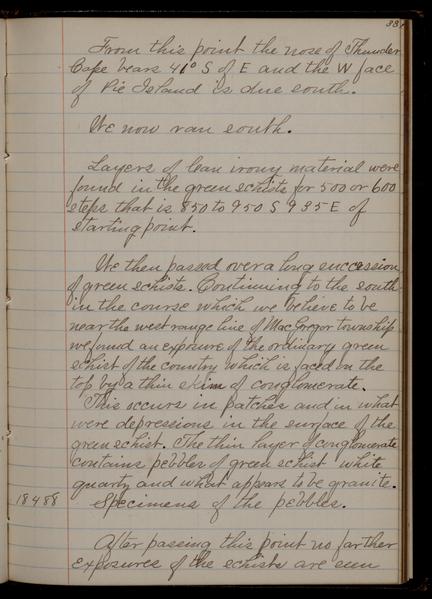 33
From this point the nose of Thunder
Cape bears 41° S of E and the W face
of Pie Island is due south.
We now ran south.
Layers of lean irony material were
found in the green schists for 500 or 600
steps that is 850 to 950 S 935 E of
starting point.
We then passed over a long succession
of green schists. Continuing to the south
in the course which we believe to be
near the west range line of MacGregor township
we found an exposure of the ordinary green
schist of the country which is faced on the
top by a thin skim of conglomerate.
This occurs in patches and in what
were depressions in the surface of the
green schist. The thin layer of conglomerate
contains pebbles of green schist white
quartz and what appears to be granite.
18488 Specimens of the pebbles.
After passing this point no farther
exposures of the schists are seen